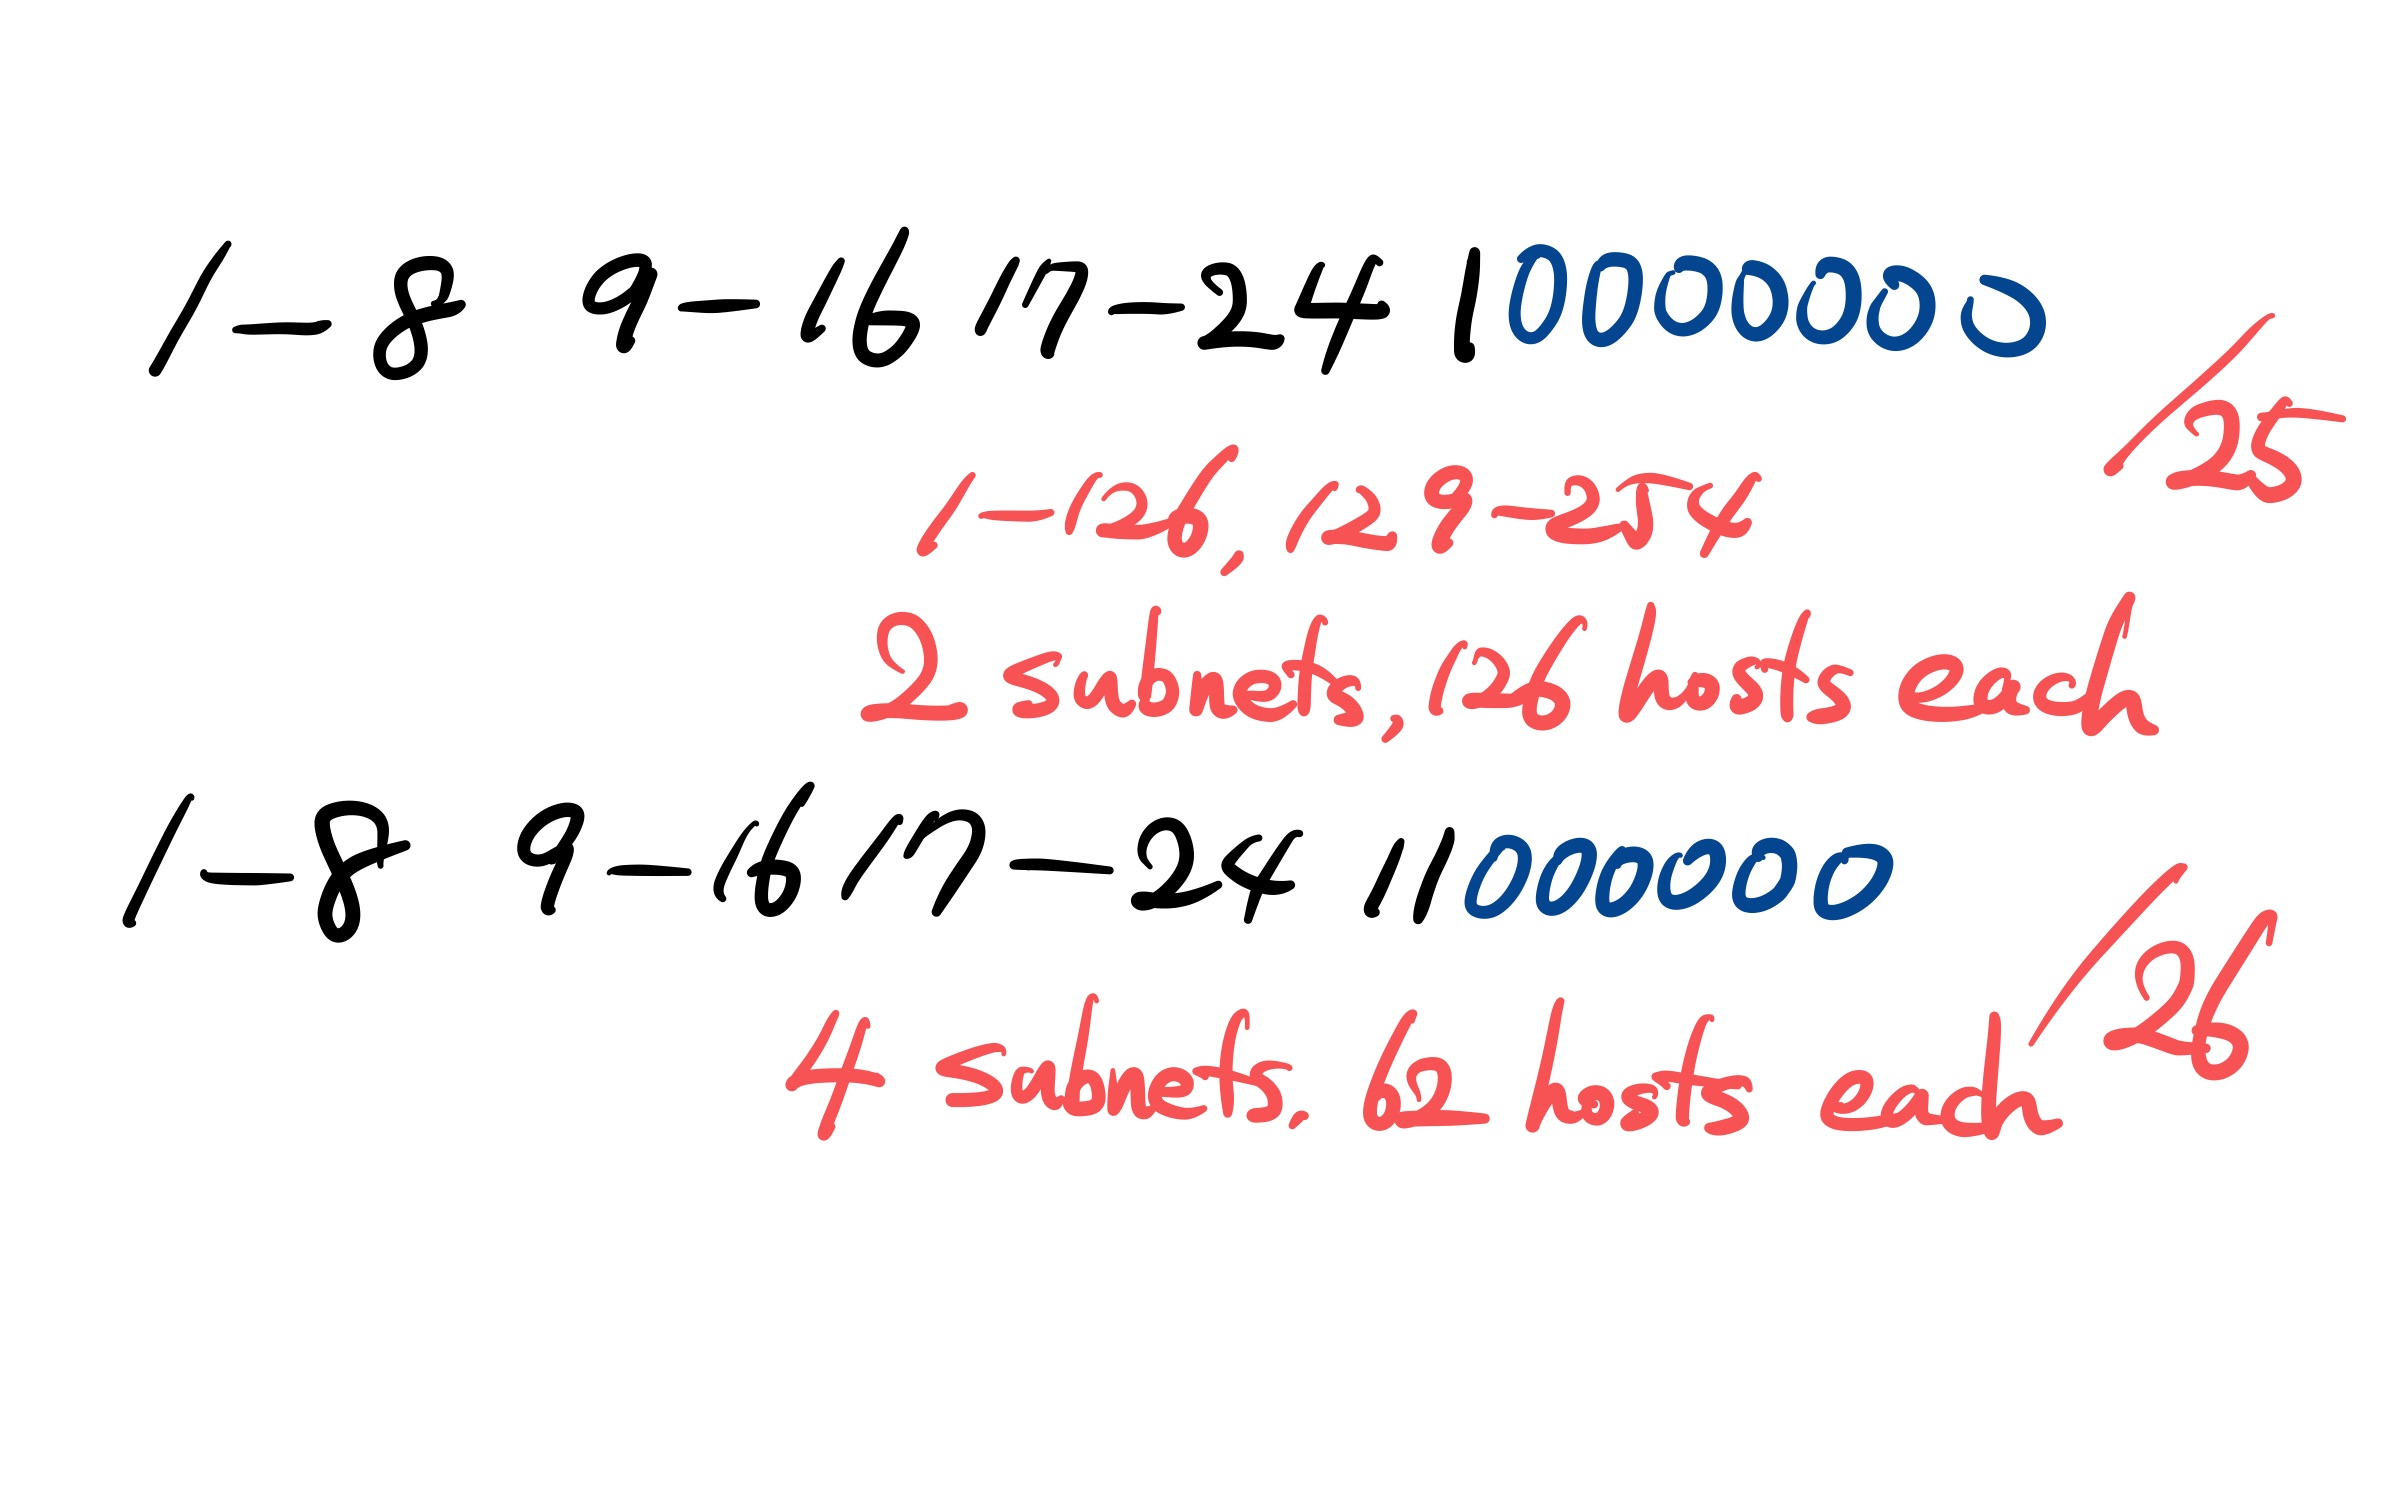 1-8 9-16 17-24 10000000
/25
1-126, 129-254
2 subnets, 126 hosts each
1-8 9-16 17-24 11000000
/26
4 subnets, 62 hosts each